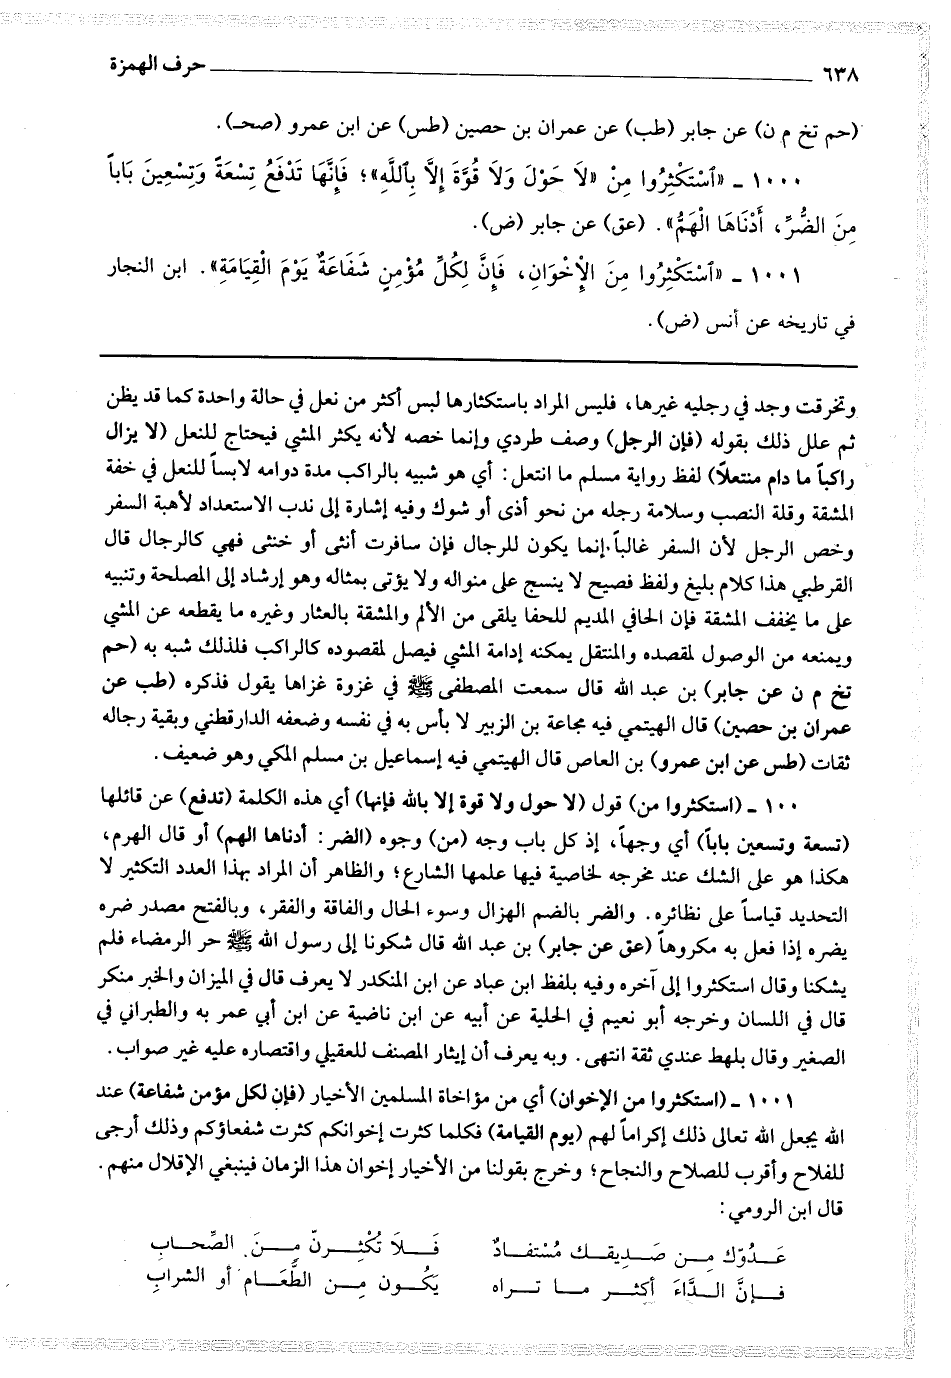 ٦٣٨ حرف الهمزة
(حم تخ م ن) عن جابر (طب) عن عمران بن حصين (طس) عن ابن عمرو (صحـ).
١٠٠٠ ـ «ٱسْتَكْثِرُوا مِنْ «لاَ حَوْلَ وَلاَ قُوَّةَ إِلاَّ بِٱللَّهِ»؛ فَإِنَّهَا تَدْفَعُ تِسْعَةً وَتِسْعِينَ بَاباً
مِنَ الضُّرِّ، أَدْنَاهَا الْهَمُّ». (عق) عن جابر (ض).
١٠٠١ ـ «ٱسْتَكْثِرُوا مِنَ الإِخْوَانِ، فَإِنَّ لِكُلِّ مُؤْمِنٍ شَفَاعَةٌ يَوْمَ الْقِيَامَةِ». ابن النجار
في تاريخه عن أنس (ض).
وتخرقت وجد في رجليه غيرها، فليس المراد باستكثارها لبس أكثر من نعل في حالة واحدة كما قد يظن
ثم علل ذلك بقوله (فإن الرجل) وصف طردي وإنما خصه لأنه يكثر المشي فيحتاج للنعل (لا يزال
راكباً ما دام منتعلاً) لفظ رواية مسلم ما انتعل: أي هو شبيه بالراكب مدة دوامه لابساً للنعل في خفة
المشقة وقلة النصب وسلامة رجله من نحو أذى أو شوك وفيه إشارة إلى ندب الاستعداد لأهبة السفر
وخص الرجل لأن السفر غالباً إنما يكون للرجال فإن سافرت أنثى أو خنثى فهي كالرجال قال
القرطبي هذا كلام بليغ ولفظ فصيح لا ينسج على منواله ولا يؤتى بمثاله وهو إرشاد إلى المصلحة وتنبيه
على ما يخفف المشقة فإن الحافي المديم للحفا يلقى من الألم والمشقة بالعثار وغيره ما يقطعه عن المشي
ويمنعه من الوصول لمقصده والمنتقل يمكنه إدامة المشي فيصل لمقصوده كالراكب فلذلك شبه به (حم
تخ م ن عن جابر) بن عبد الله قال سمعت المصطفى ﷺ في غزوة غزاها يقول فذكره (طب عن
عمران بن حصين) قال الهيتمي فيه مجاعة بن الزبير لا بأس به في نفسه وضعفه الدارقطني وبقية رجاله
ثقات (طس عن ابن عمرو) بن العاص قال الهيتمي فيه إسماعيل بن مسلم المكي وهو ضعيف.
١٠٠ ـ (استكثروا من) قول (لا حول ولا قوة إلا بالله فإنها) أي هذه الكلمة (تدفع) عن قائلها
(تسعة وتسعين باباً) أي وجهاً، إذ كل باب وجه (من) وجوه (الضر: أدناها الهم) أو قال الهرم،
هكذا هو على الشك عند مخرجه لخاصية فيها علمها الشارع؛ والظاهر أن المراد بهذا العدد التكثير لا
التحديد قياساً على نظائره. والضر بالضم الهزال وسوء الحال والفاقة والفقر، وبالفتح مصدر ضره
يضره إذا فعل به مكروهاً (عق عن جابر) بن عبد الله قال شكونا إلى رسول الله ﷺ حر الرمضاء فلم
يشكنا وقال استكثروا إلى آخره وفيه بلفظ ابن عباد عن ابن المنكدر لا يعرف قال في الميزان والخبر منكر
قال في اللسان وخرجه أبو نعيم في الحلية عن أبيه عن ابن ناضية عن ابن أبي عمر به والطبراني في
الصغير وقال بلهط عندي ثقة انتهى. وبه يعرف أن إيثار المصنف للعقيلي واقتصاره عليه غير صواب.
١٠٠١ ـ (استكثروا من الإخوان) أي من مؤاخاة المسلمين الأخيار (فإن لكل مؤمن شفاعة) عند
الله يجعل الله تعالى ذلك إكراماً لهم (يوم القيامة) فكلما كثرت إخوانكم كثرت شفعاؤكم وذلك أرجى
للفلاح وأقرب للصلاح والنجاح؛ وخرج بقولنا من الأخيار إخوان هذا الزمان فينبغي الإقلال منهم.
قال ابن الرومي:
عَـدُوّك مـن صَـدِيقـك مُسْتفـادٌ فَـلاَ تُكْثِـرنّ مِـنَ الصِّحـابِ
فـإنَّ الـدَّاءَ أكثـر مـا تـراه يَكُـون مِـن الطَّعَـام أو الشرابِ